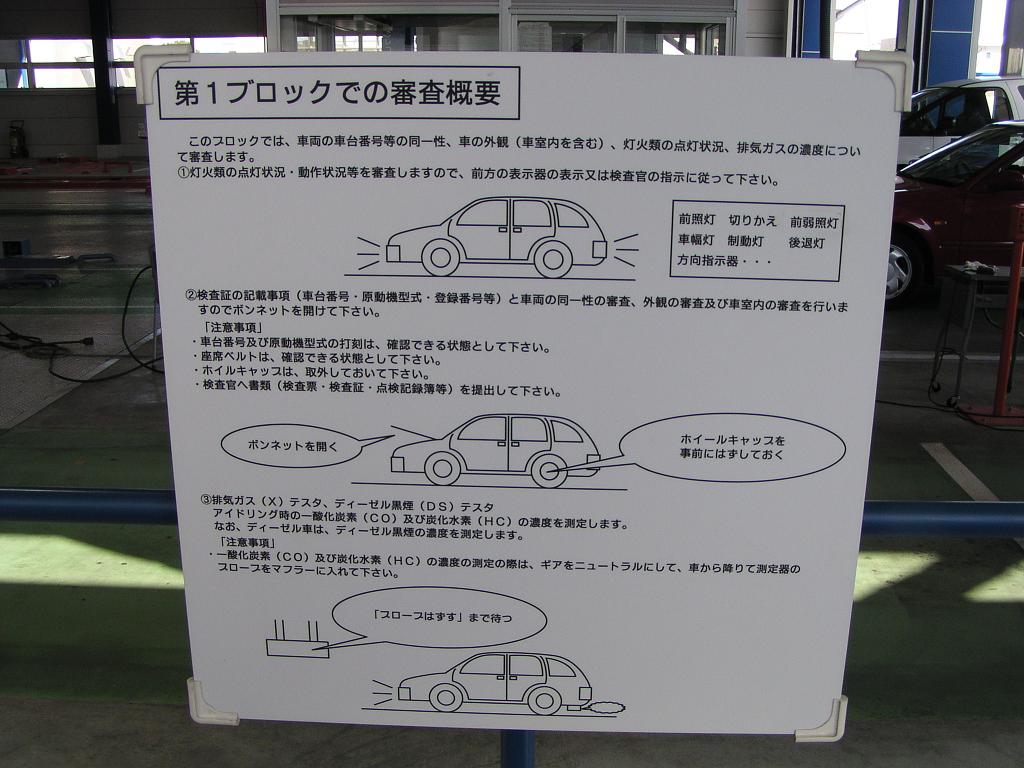 第1ブロックでの審査概要
このブロックでは、車両の車台番号等の同一性、車の外観（車室内を含む）、灯火類の点灯状況、排気ガスの濃度につい
て審査します。
①灯火類の点灯状況・動作状況等を審査しますので、前方の表示器の表示又は検査官の指示に従って下さい。
前照灯　切りかえ　前弱照灯
車幅灯　制動灯　後退灯
方向指示器・・・
②検査証の記載事項（車台番号・原動機型式・登録番号等）と車両の同一性の審査、外観の審査及び車室内の審査を行いま
すのでボンネットを開けて下さい。
「注意事項」
・車台番号及び原動機型式の打刻は、確認できる状態として下さい。
・座席ベルトは、確認できる状態として下さい。
・ホイルキャップは、取外しておいて下さい。
・検査官へ書類（検査票・検査証・点検記録簿等）を提出して下さい。
ボンネットを開く
ホイールキャップを
事前にはずしておく
③排気ガス（X）テスタ、ディーゼル黒煙（DS）テスタ
アイドリング時の一酸化炭素（CO）及び炭化水素（HC）の濃度を測定します。
なお、ディーゼル車は、ディーゼル黒煙の濃度を測定します。
「注意事項」
・一酸化炭素（CO）及び炭化水素（HC）の濃度の測定の際は、ギアをニュートラルにして、車から降りて測定器の
プローブをマフラーに入れて下さい。
「プローブはずす」まで待つ